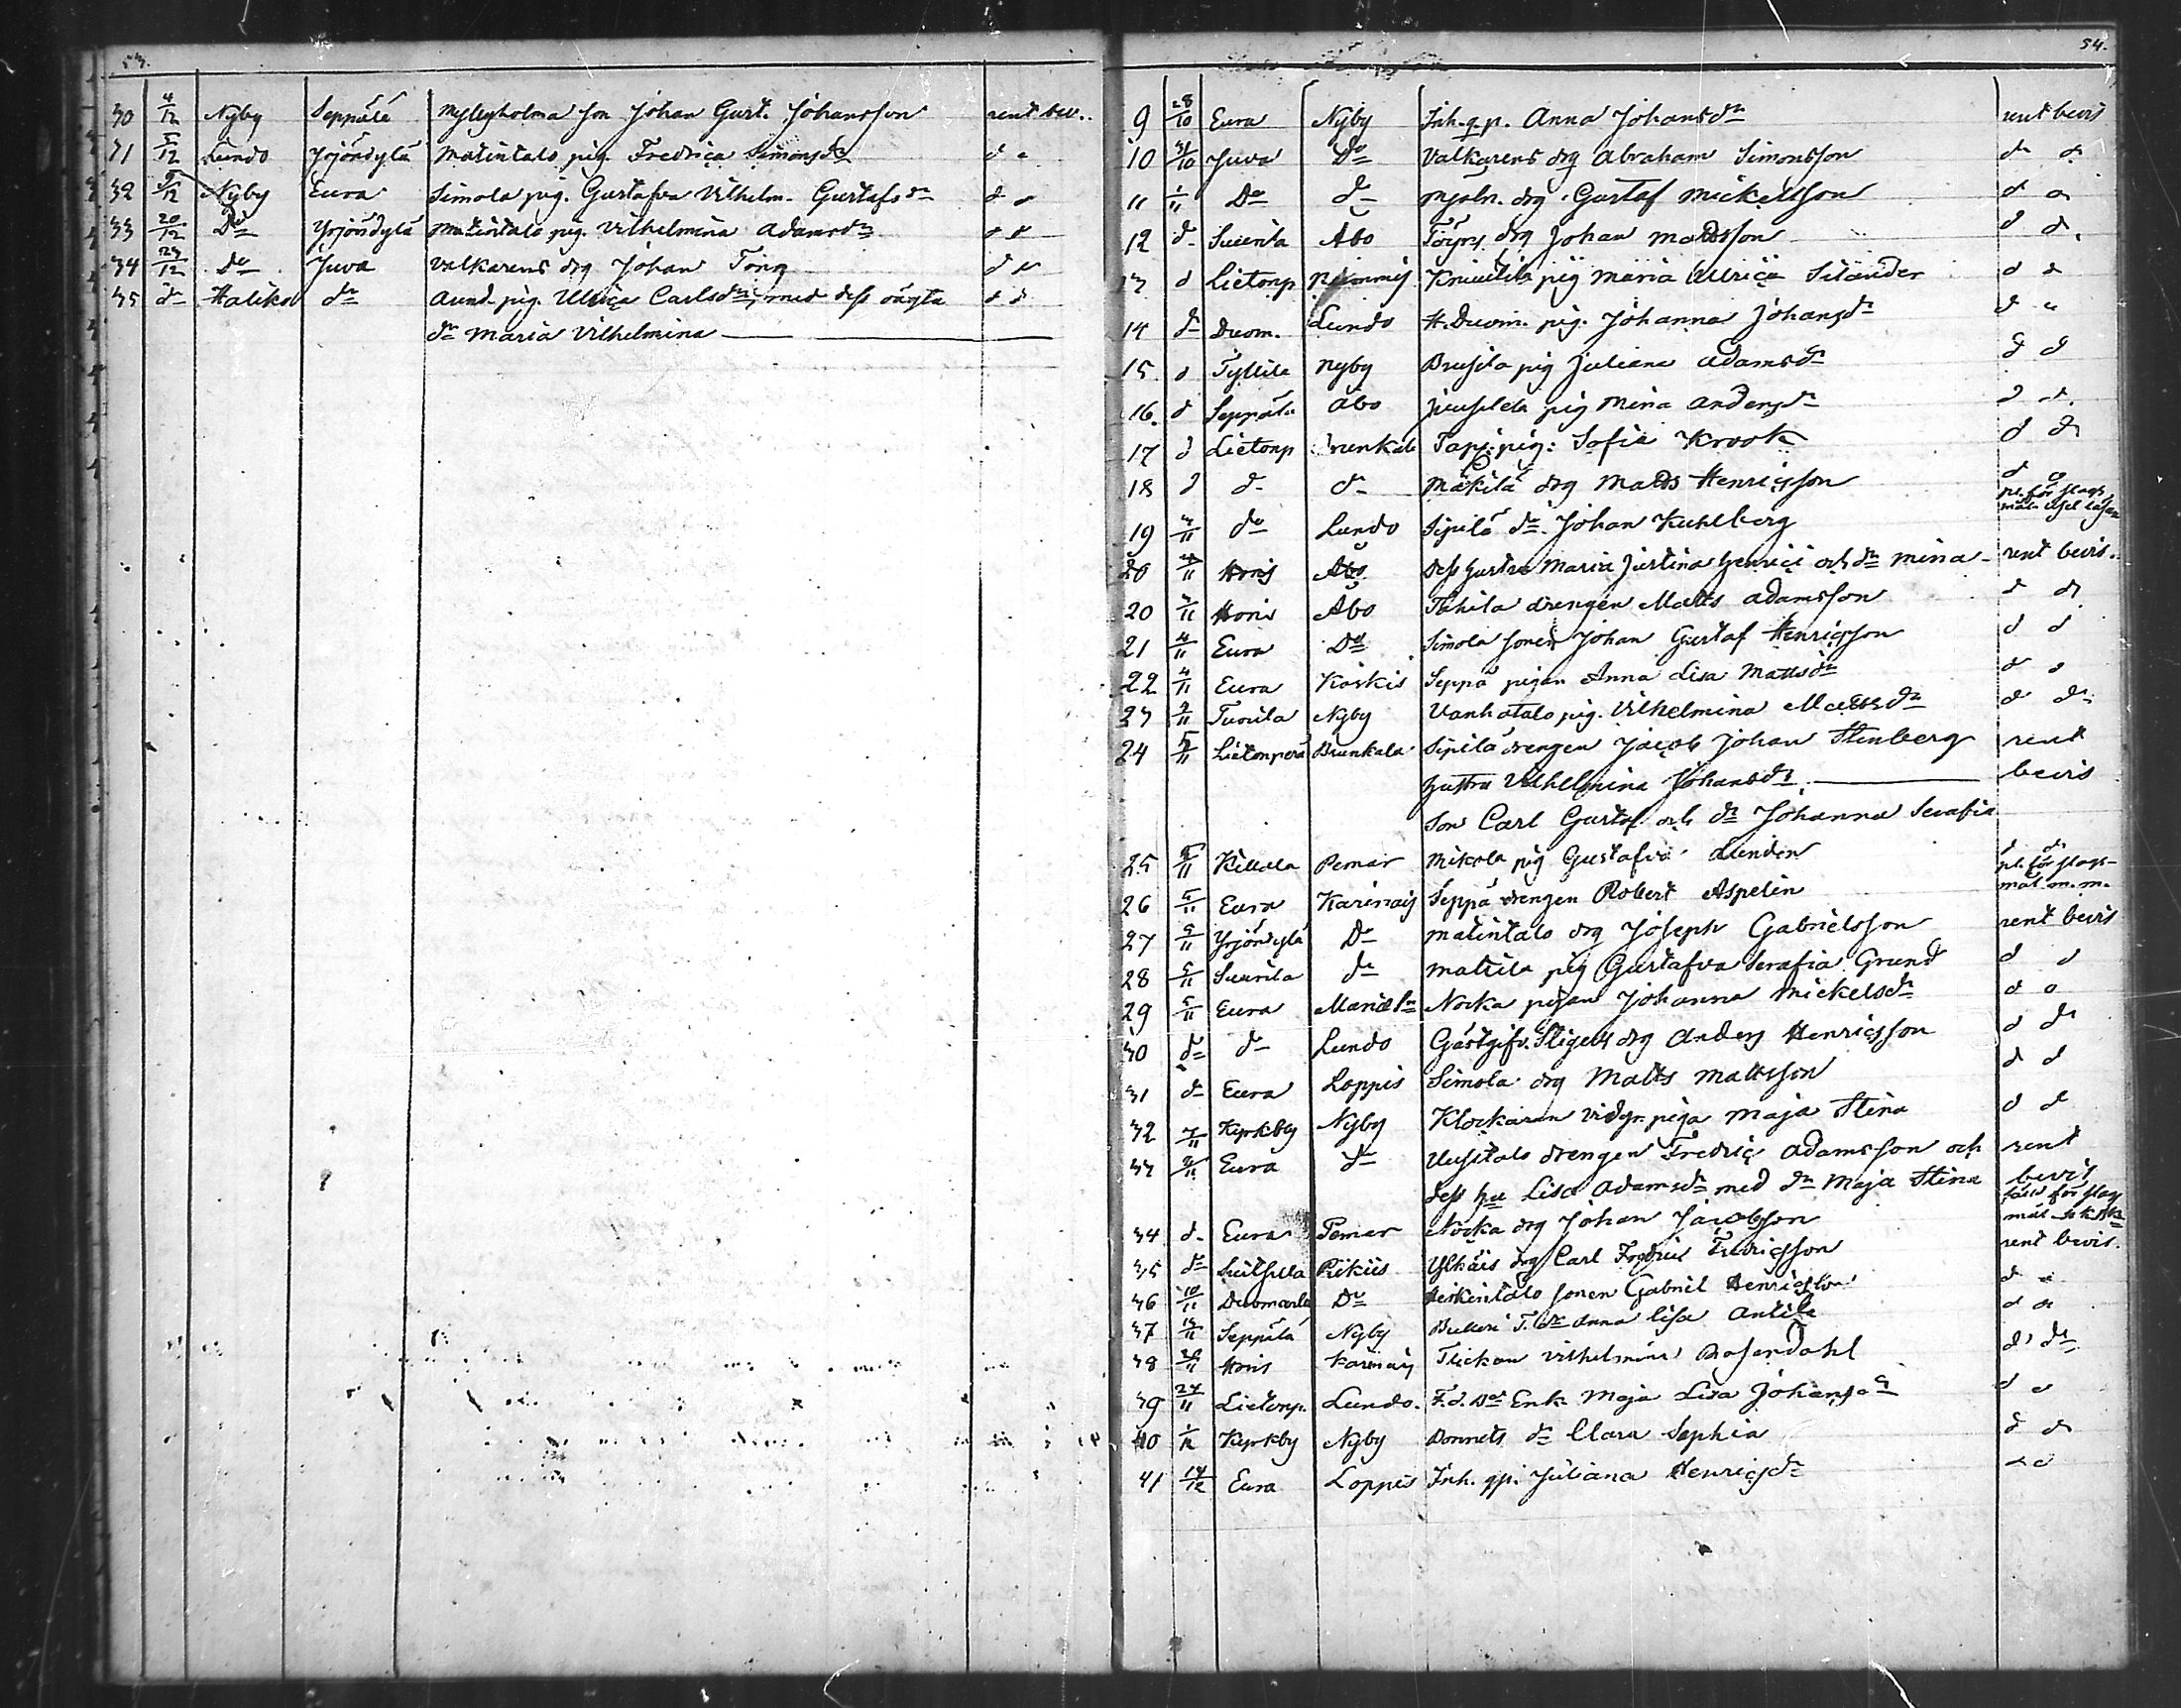 53.
30 4/12 Nyby Seppälä Myllyholma son Johan Gust. Johansson rent bev.
31 5/12 Lundo Yrjöndylä Matintalo pig. Fredrica Simonsdr d o
32 9/12 Nyby Eura Simola pig. Gustafva Vilhelm. Gustafsdr d o
33 20/12 Do Yrjöndylä Matintalo pig. Vilhelmina Adamsdr d o
34 23/12 Do Juva Valkarens drg Johan Töng d o
35 do Haliko do pig. Ulrica Carlsdr, med dess oägta d o
dr Maria Vilhelmina
54.
9 28/10 Eura Nyby Inh. q. p. Anna Johansdr rent bevis
10 31/10 Juva Do Valkarens drg Abraham Simonsson do o
11 1/11 Do do mjöln. drg Gustaf Mickelsson d o
12 d Suurila Åbo drg Johan Mattsson d o
13 d Lietonp Knuutila pig Maria Ulrica Silander d o
14 do Duom. Lundo H. Duom. pig. Johanna Johansdr d o
15 d Tyllilä Nyby Brusila pig Juliana Adamsdr d d
16. d Seppälä Åbo pig Mina Andersdr d d
17 d Lietonp Brunkala Tapi pig: Sofia Krook d do
18 d do do Mäkilä drg Matts Henricsson d o
19 3/11 do Lundo Sipilä do Johan Kuhlberg
pl. för slagsmål
20 /11 Honis Åbo dess hustru Maria Justina Henrici och dr Mina rent bevis.
20 3/11 Honis Åbo drengen Matts Adamsson d do
21 4/11 Eura Do Simola sonen Johan Gustaf Henricsson d d
22 4/11 Eura Koskis Seppä pigan Anna Lisa Mattsdr d o
23 /11 Tuorila Nyby Vanhatalo pig. Vilhelmina Mattsdr d do
24 5/11 Lietonperä Brunkala Sipilä drengen Jacob Johan Stenberg rent
hustru Vilhelmina Johansdr. bevis
Son Carl Gustaf och dr Johanna Serafia
25 5/11 Killala Pemar Mikola pig Gustafva Linden d d
26 5/11 Eura Karinais Seppä drengen Robert Aspelin pl. för slagsmål m. m.
27 5/11 Yrjöndylä Do Matintalo drg Joseph Gabrielsson rent bevis
28 5/11 Suurila do Mattila pig Gustafva Serafia Grund d d
29 5/11 Eura Mariæ Nocka pigan Johanna Mickelsdr d o
30 do do Lundo Gästgifv. Stigells drg Anders Henricsson d do
31 do Eura Loppis Simola drg Matts Mattsson d d
32 7/11 Kyrkby Nyby Klockaren pigan Maja Stina d d
33 9/11 Eura do Uusitalo drengen Fredric Adamsson och rent
dess hu Lisa Adamsdr med dr Maja Stina bevis
34 d. Eura Pemar Nocka drg Johan Jacobsson för slagsmål
35 do Pikiis Ylhäis drg Carl Fredric Fredricsson rent bevis.
36 10/11 Duomarla Do Heikintalo sonen Gabriel Henricsson d o
37 13/11 Seppälä Nyby T. dr Anna Lisa Antila d o
38 20/11 Honis Karinais Flickan Vilhelmina Rosendahl d do
39 24/11 Lietonp. Lundo. F. d. Enk. Maja Lisa Johansdr d o
40 1/12 Kyrkby Nyby dr Clara Sophia d do
41 14/12 Eura Loppis Inh. qp. Juliana Henricsdr d d